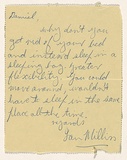 Daniel,
why don't you
get rid of your bed
and instead sleep in a
sleeping bag. greater
flexibility. You could
move around, wouldn't
have to sleep in the same
place all the time.
regards
Ian Wilson